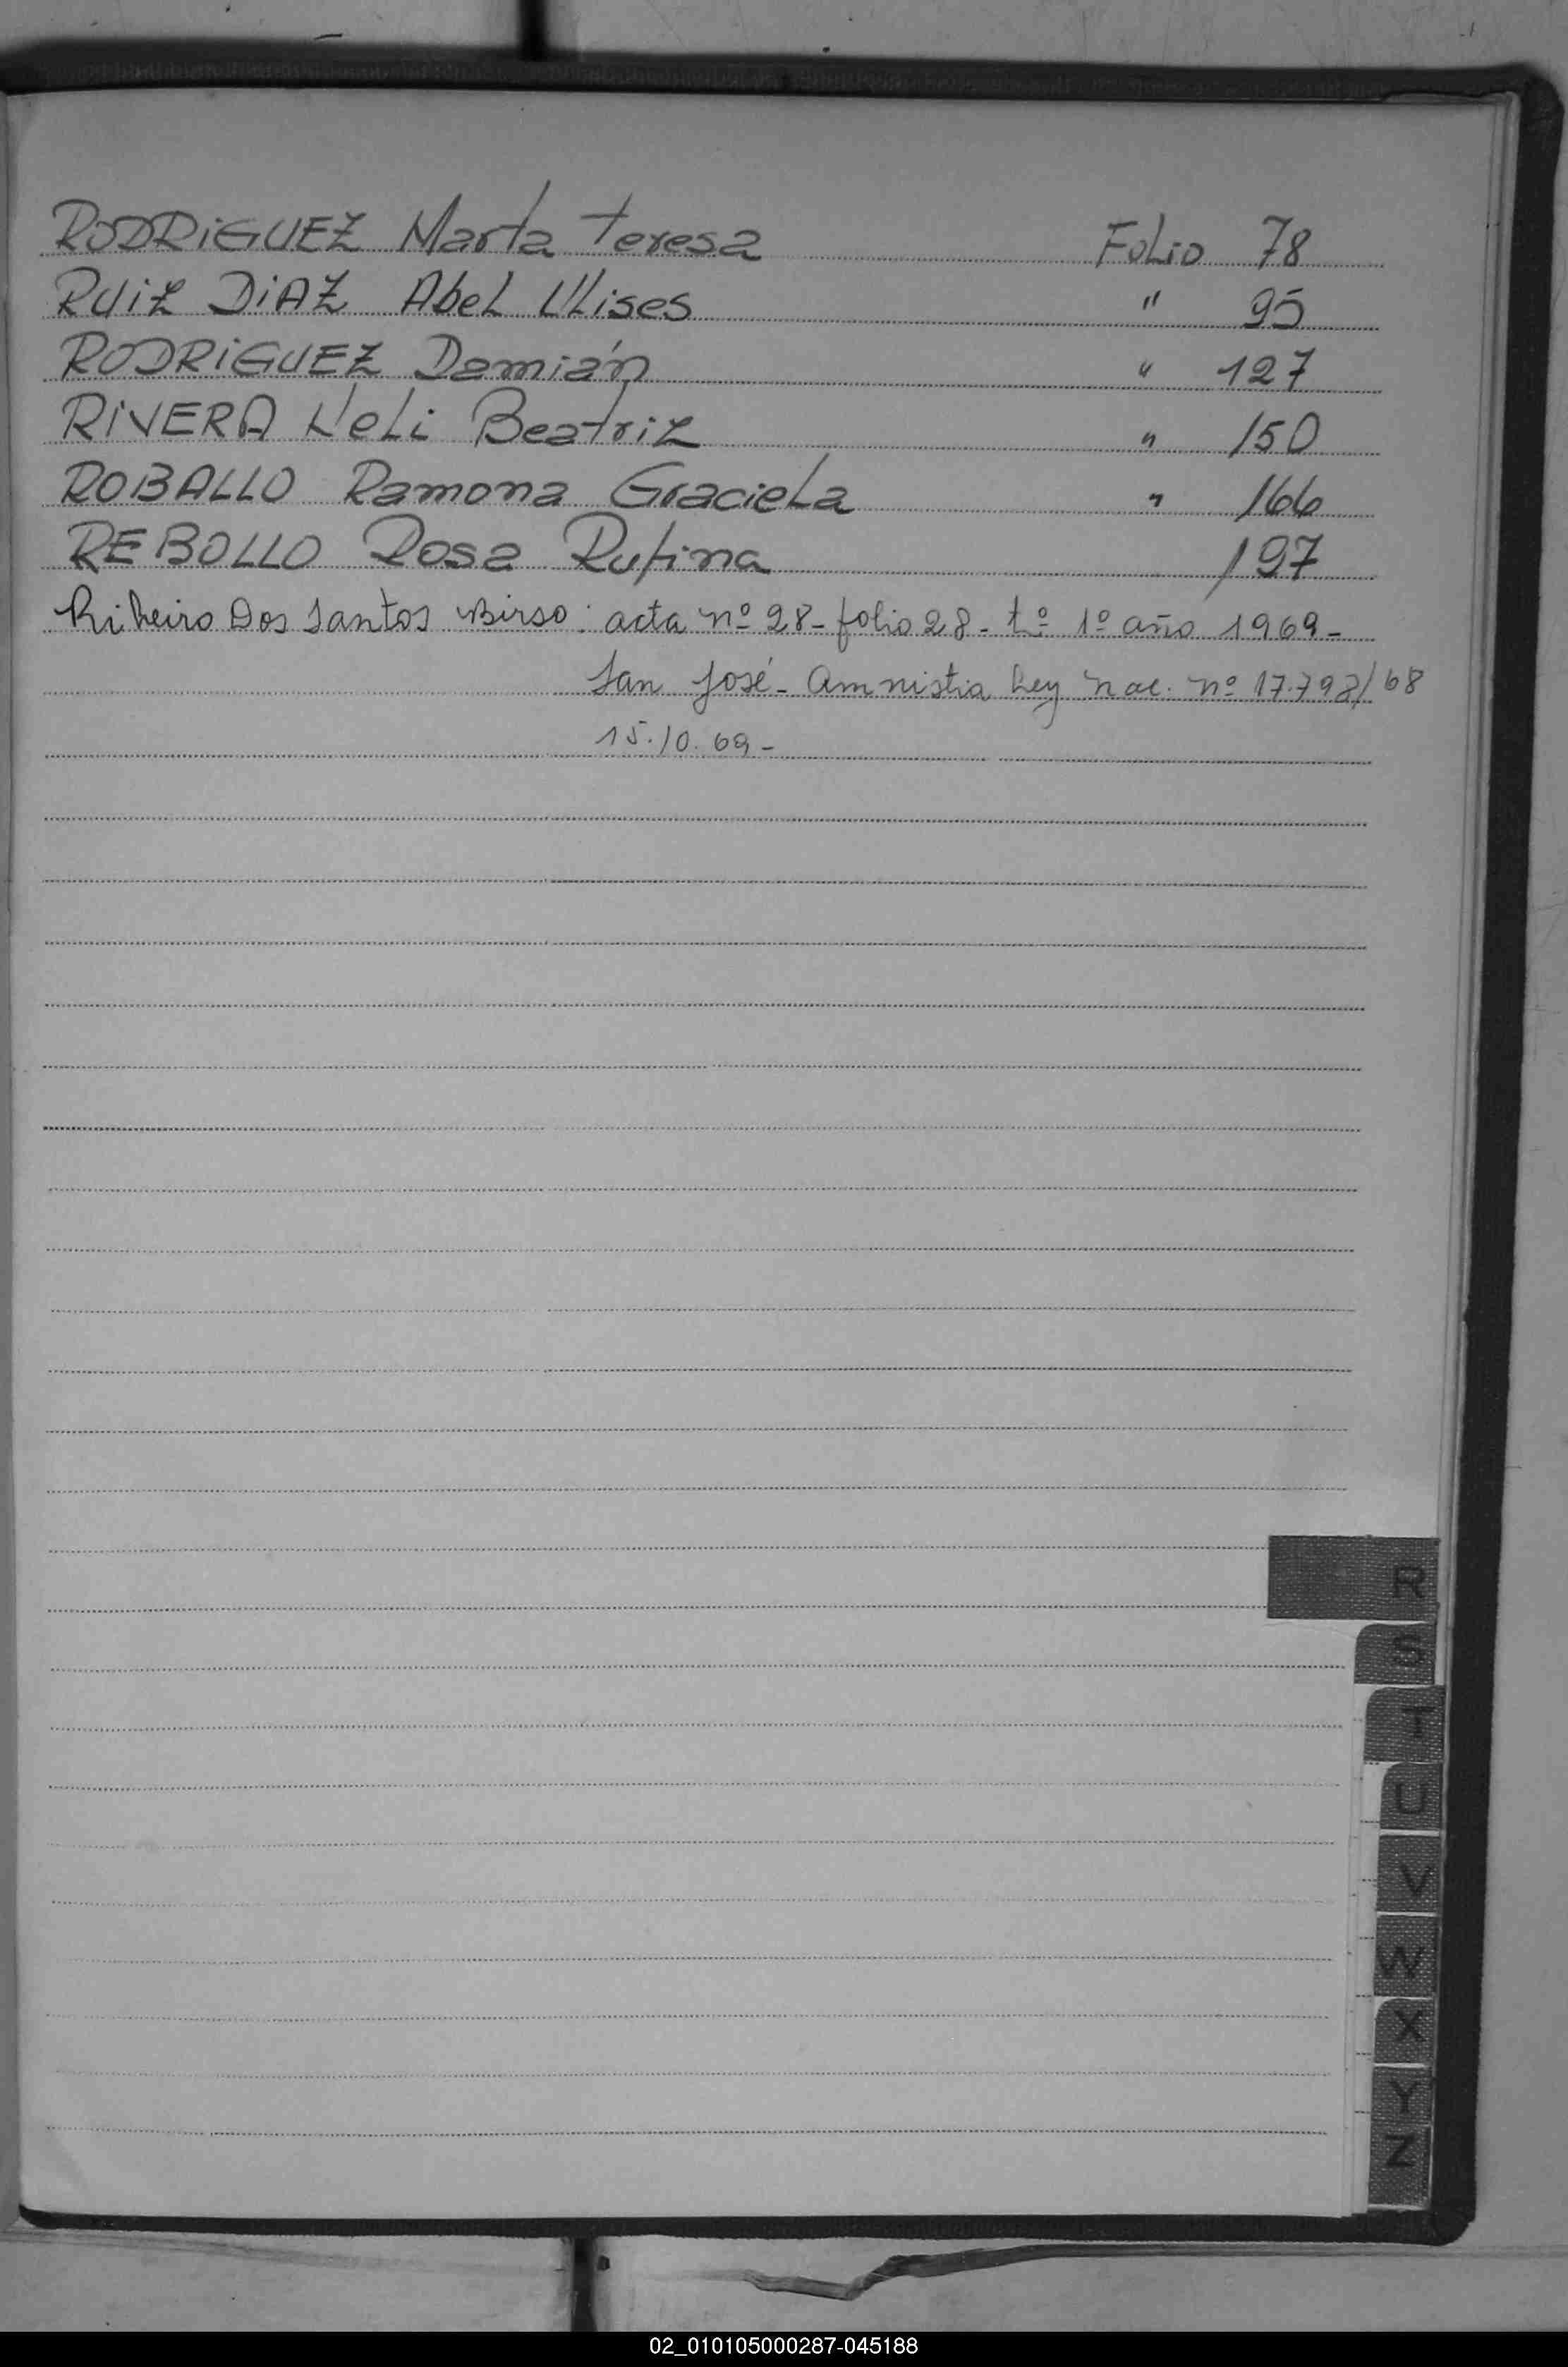 RODRIGUEZ Marta Teresa Folio 78
RUIZ DIAZ Abel Ulises " 95
RODRIGUEZ Damián " 127
RIVERA Neli Beatriz " 150
ROBALLO Ramona Graciela " 166
REBOLLO Rosa Rufina 197
Ribeiro Dos Santos Birso: acta nº 28 - folio 28 - tº 1º año 1969 -
San José - Amnistia Ley Nac. nº 17.792/68
15.10.69 -
R
S
T
U
V
W
X
Y
Z
02_010105000287-045188